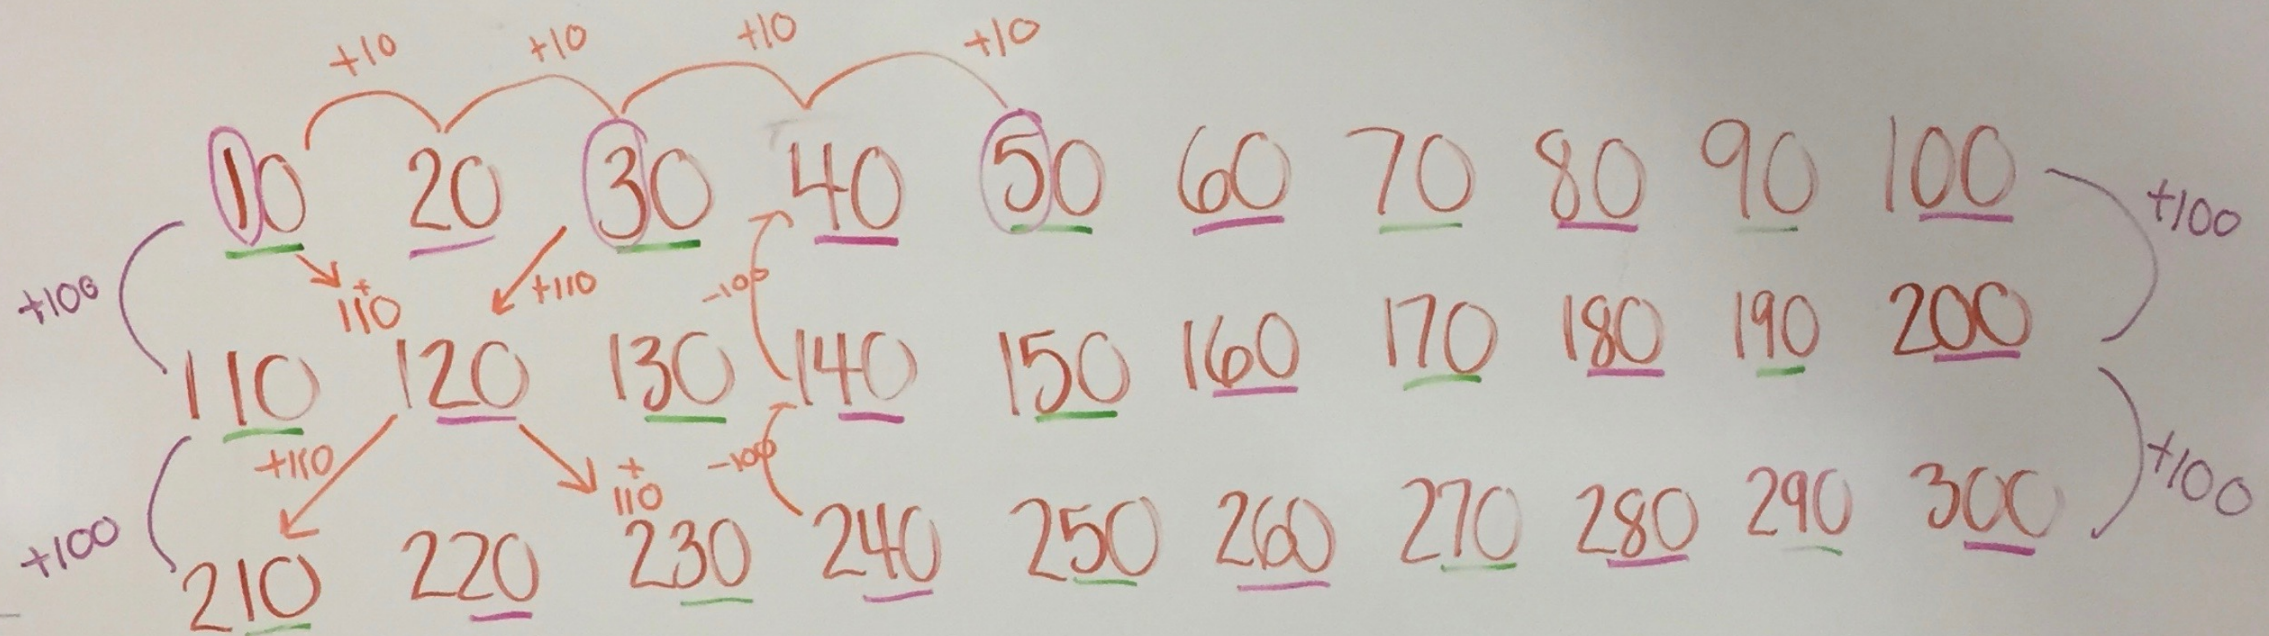 +10 +10 +10 +10
10 20 30 40 50 60 70 80 90 100
+100 +110 +110 -100 +100
110 120 130 140 150 160 170 180 190 200
+100 +110 +110 -100 +100
210 220 230 240 250 260 270 280 290 300